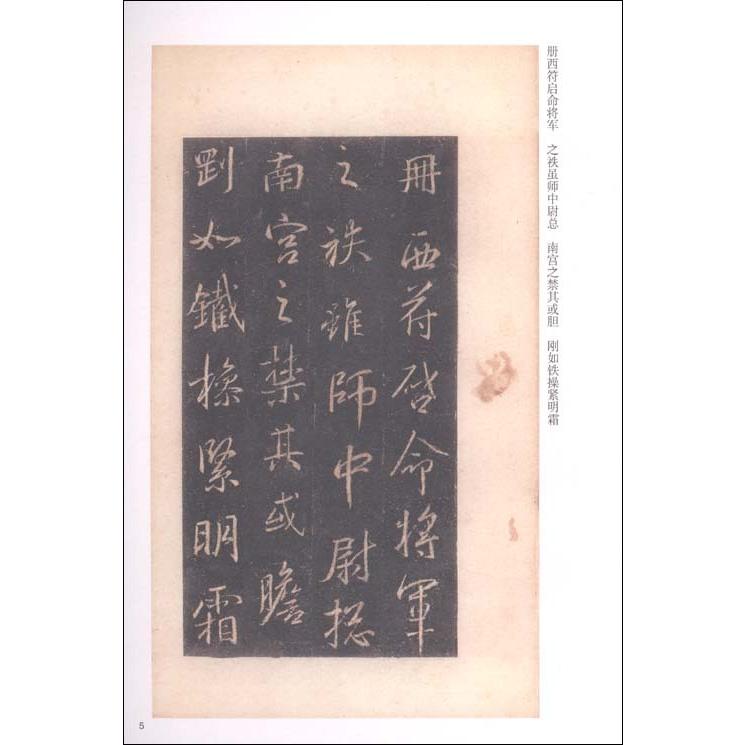 册西苻启命将军　之袟虽师中尉总　南宫之禁其或胆　刚如铁操紧明霜
冊西苻啓命將軍
之袟雖師中尉揔
南宫之禁其或膽
剛如鐵操緊明霜
5